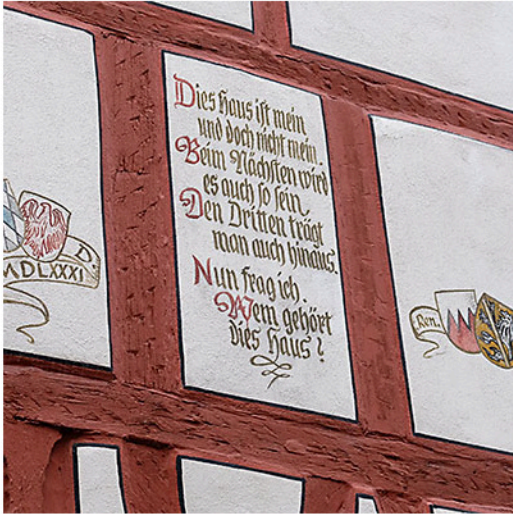 Dies Haus ist mein
und doch nicht mein.
Beim Nächsten wird
es auch so sein,
Den Dritten trägt
man auch hinaus.
Nun frag ich.
Wem gehört
dies Haus?
D.
MDLXXXI
Ren.